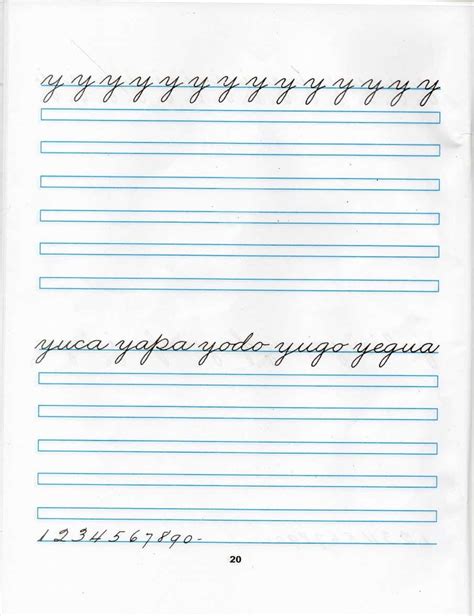 y y y y y y y y y y y y y y
yuca yapa yodo yugo yegua
1 2 3 4 5 6 7 8 9 0 -
20